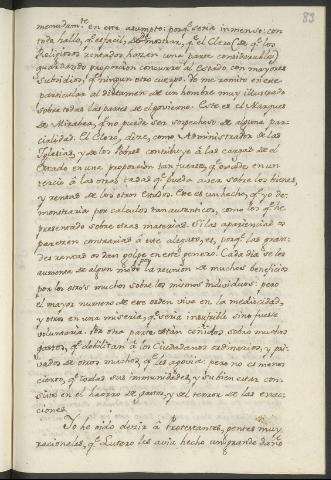 83
menudam.te en este asumpto: porq.e seria inmenso: con
todo hallo, q.e es facil, demostrar, q.e el Clero (de q.e los
Religiosos rentados hazen una parte considerable)
guardando proporcion concurre al Estado con mayores
Subsidios, q.e ningun otro cuerpo. Yo me remito en este
particular al dictamen de un hombre muy ilustrado
sobre todas las partes de el govierno. Este es el Marques
de Mirabeau, q.e no puede ser sospechoso de alguna par-
cialidad. El Clero, dice, como Administrador de las
Iglesias, y de los Pobres contribuye à las cargas de el
Estado en una proporcion tan fuerte, q.e excede en un
tercio à las otras tasas q.e pueda aver sobre los bienes,
y rentas de los otros Estados. Este es un hecho, q.e yo de-
mostraria por calculos tan autenticos, como los q.e he
presentado sobre otras materias. Si las apariencias
parecen contrarias à este aserto, es, porq.e las gran-
des rentas dan golpe en este genero. Cada dia se les
aumenta de algun modo por la reunion de muchos beneficios
por los otros muchos sobre los mismos individuos: pero
el mayor numero de este orden vive en la mediocridad,
y otros en una miseria, q.e seria insufrible sino fuese
voluntaria. Por otra parte estan ceñidos sobre muchos
gastos, q.e debilitan à los Ciudadanos ordinarios, y pri-
vados de otros muchos, q.e les agovia: pero no es menos
cierto, q.e todas sus immunidades, y subien estar con-
siste en el horror de gastos, y el terror de las exac-
ciones.
Yo he oido dezir à Protestantes, gentes muy
racionales, q.e Lutero les avia hecho un grande daño